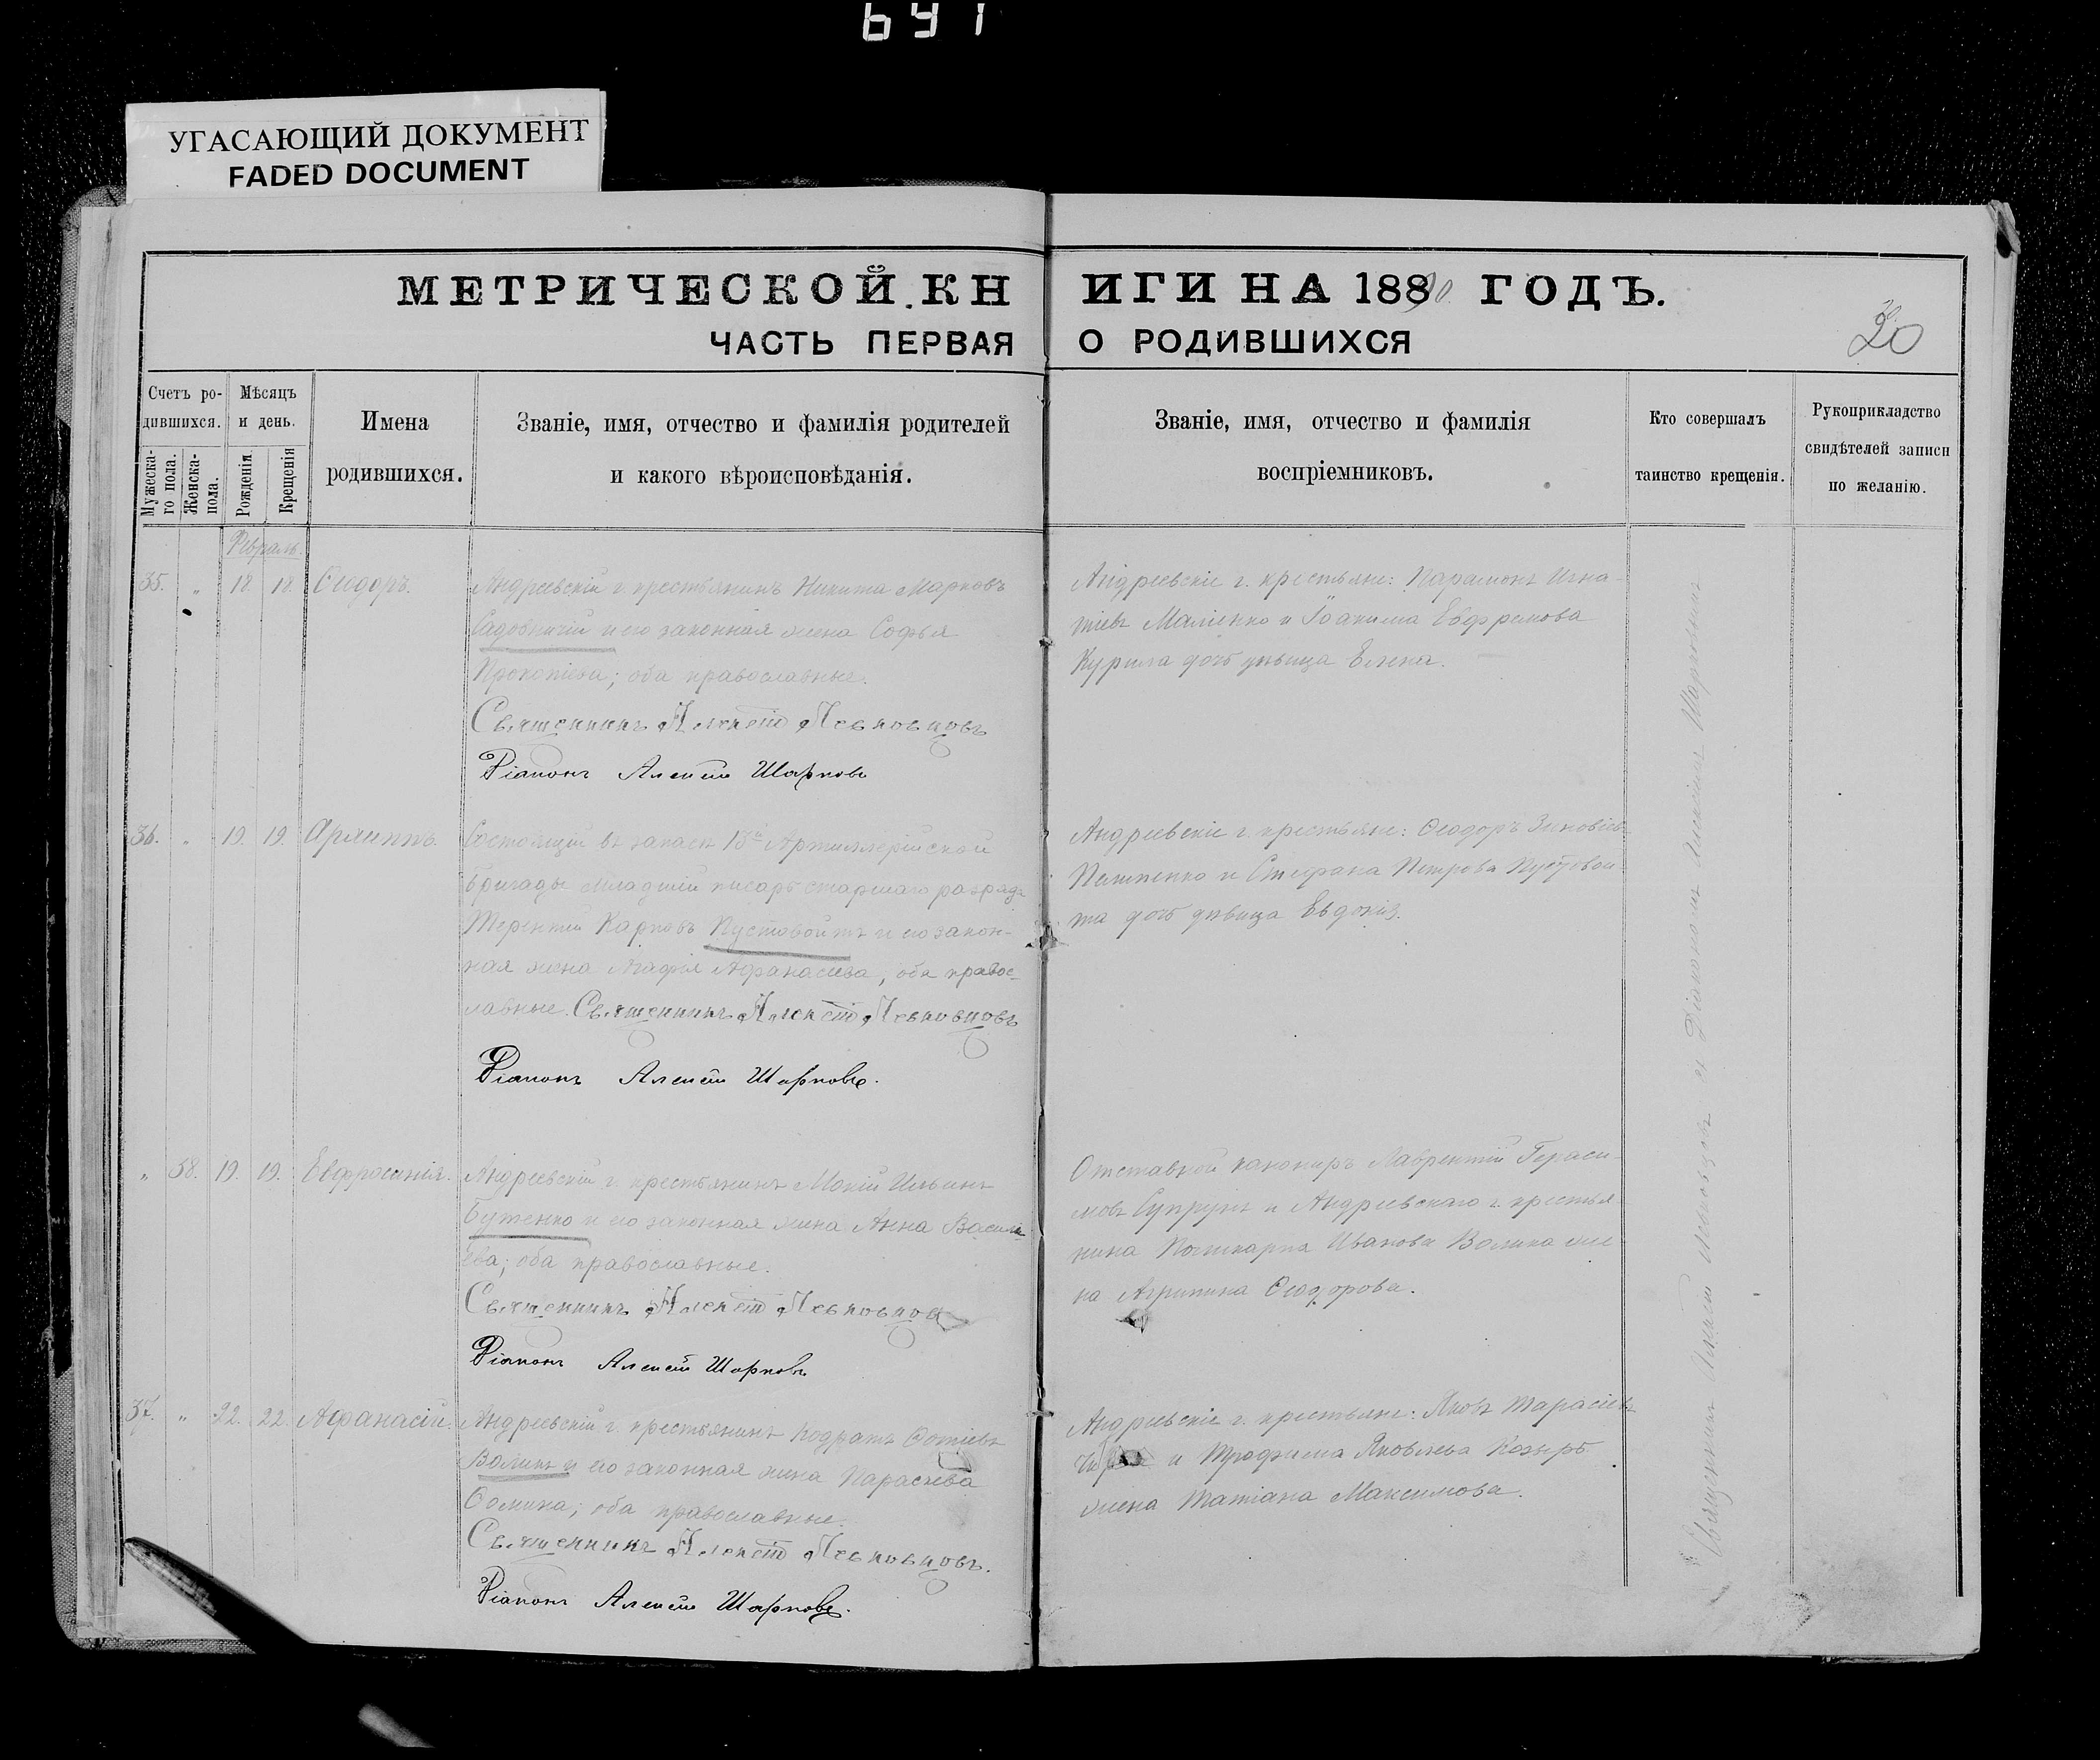 691
УГАСАЮЩИЙ ДОКУМЕНТ
FADED DOCUMENT
МЕТРИЧЕСКОЙ КНИГИ НА 1890 ГОДЪ.
ЧАСТЬ ПЕРВАЯ О РОДИВШИХСЯ
20
Счетъ родившихся.
Мужеска-го пола.
Женска-пола.
Мѣсяцъ и день.
Рожденія
Крещенія
Имена
родившихся.
Званіе, имя, отчество и фамилія родителей
и какого вѣроисповѣданія.
Званіе, имя, отчество и фамилія
воспріемниковъ.
Кто совершалъ
таинство крещенія.
Рукоприкладство
свидѣтелей записи
по желанію.
Февраль.
35. " 18 18. Сидоръ.
Андреевскій г. крестьянинъ Никита Марковъ
Садовничій и его законная жена Софья
Прокопіева; оба православные.
Священникъ Алексій Левковцовъ
Діаконъ Алексій Шарковъ
Андреевскіе г. крестьяне: Парамонъ Игна-
тіевъ Маліенко и Іоакима Евфремова
Курила дочь дѣвица Елена.
36. " 19. 19.
Состоящій въ запасѣ 13й Артиллерійской
бригады младшій писарь старшаго разряда
Терентій Карповъ Пустовойтъ и его закон-
ная жена Агафія Афанасіева, оба правос-
лавные. Священникъ Алексій Левковцовъ
Діаконъ Алексій Шарковъ.
Андреевскіе г. крестьяне: Ѳеодоръ Зиновіевъ
и Стефана Петрова Пустовой-
та дочь дѣвица Евдокія.
" 38. 19. 19. Евфросинія.
Андреевскій г. крестьянинъ Мокій Ильинъ
Бутенко и его законная жена Анна Василь-
ева; оба православные.
Священникъ Алексій Левковцовъ
Діаконъ Алексій Шарковъ
Отставной канониръ Лаврентій Гераси-
мовъ Супрунъ и Андреевскаго г. крестья-
нина Поликарпа Иванова Волика же-
на Агрипина Ѳеодорова.
37. " 22. 22. Афанасій.
Андреевскій г. крестьянинъ Кодратъ Фотіевъ
Воликъ и его законная жена Параскева
Ѳомина; оба православные.
Священникъ Алексій Левковцовъ.
Діаконъ Алексій Шарковъ.
Андреевскіе г. крестьяне: Яковъ Тарасіевъ
и Трофима Яковлева Козыря
жена Татіана Максимова.
Священникъ Алексій Левковцовъ съ Діакономъ Алексіемъ Шарковымъ